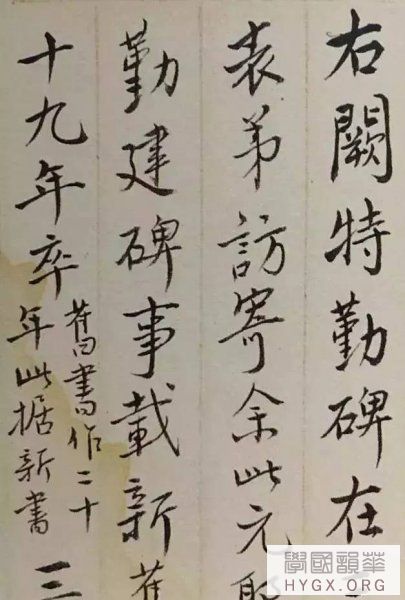 右闕特勤碑在
表弟訪寄余此元
勤建碑事載新舊
十九年卒舊書作二十
年此据新書三
學國韻華
HYGX.ORG